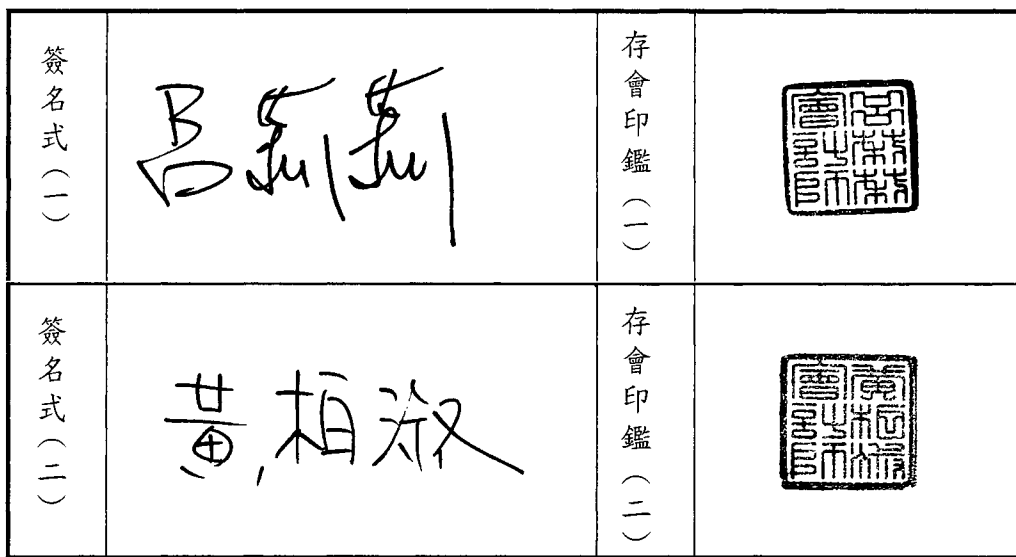 簽名式（一）
呂莉莉
存會印鑑（一）
呂莉莉會計師
簽名式（二）
黃柏淑
存會印鑑（二）
黃柏淑會計師